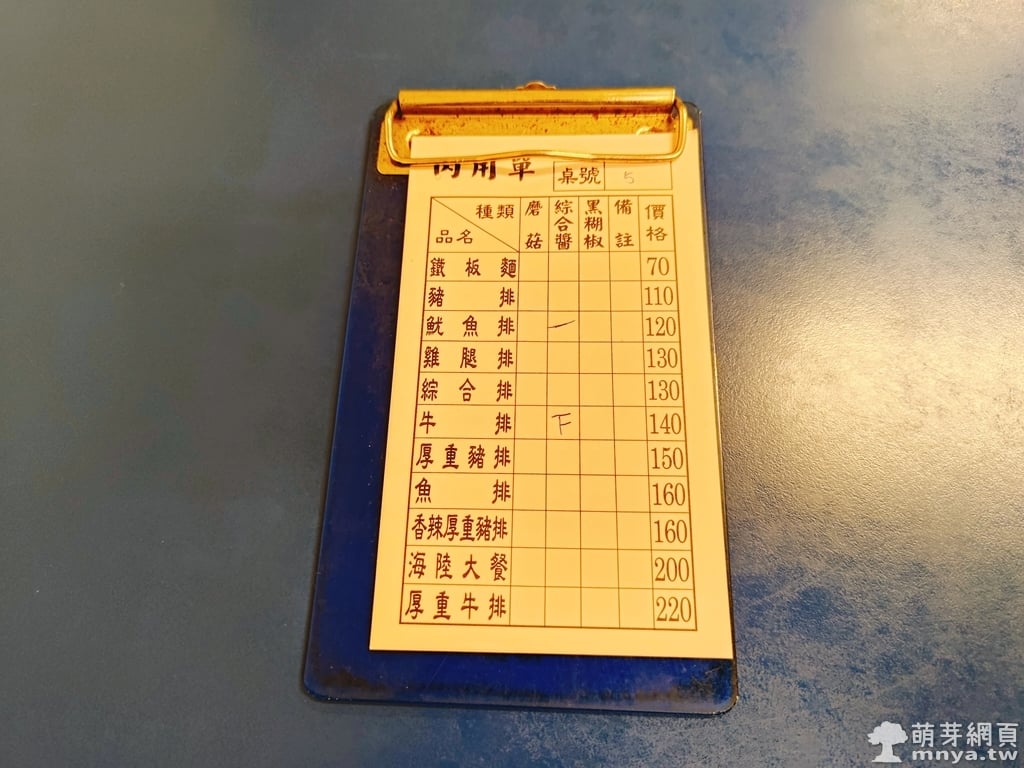 內用單 桌號 5
種類 品名 磨菇 綜合醬 黑糊椒 備註 價格
鐵板麵 70
豬排 110
魷魚排 一 120
雞腿排 130
綜合排 130
牛排 下 140
厚重豬排 150
魚排 160
香辣厚重豬排 160
海陸大餐 200
厚重牛排 220
萌芽網頁
mnya.tw